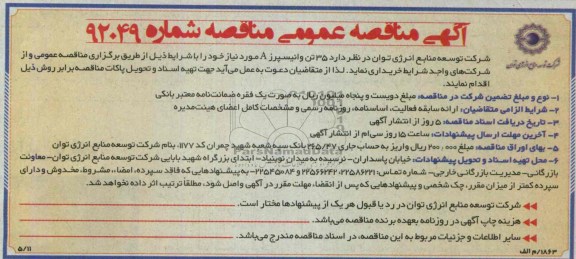 آگهی مناقصه عمومی مناقصه شماره ۹۲۰۴۹
شرکت توسعه منابع انرژی توان در نظر دارد ۳۵ تن وانیسپرز A مورد نیاز خود را با شرایط ذیل از طریق برگزاری مناقصه عمومی و از
شرکت‌های واجد شرایط خریداری نماید. لذا از متقاضیان دعوت به عمل می‌آید جهت تهیه اسناد و تحویل پاکات مناقصه برابر روش ذیل
اقدام نمایند.
۱- نوع و مبلغ تضمین شرکت در مناقصه: مبلغ دویست و پنجاه میلیون ریال به صورت یک فقره ضمانت‌نامه معتبر بانکی
۲- شرایط الزامی متقاضیان: ارائه سابقه فعالیت، اساسنامه، روزنامه رسمی و مشخصات کامل اعضای هیئت‌مدیره
۳- تاریخ دریافت اسناد مناقصه: ۵ روز از انتشار آگهی
۴- آخرین مهلت ارسال پیشنهادات: ساعت ۱۵ روز سی‌ام از انتشار آگهی
۵- بهای اوراق مناقصه: مبلغ ۲۰۰,۰۰۰ ریال واریز به حساب جاری ۲۶۵/۴۷ بانک سپه شعبه شهید چمران کد ۱۱۷۷، بنام شرکت توسعه منابع انرژی توان
۶- محل تهیه اسناد و تحویل پیشنهادات: خیابان پاسداران- نرسیده به میدان نوبنیاد- ابتدای بزرگراه شهید بابایی شرکت توسعه منابع انرژی توان- معاونت
بازرگانی- مدیریت بازرگانی خارجی- شماره تماس: ۲۲۵۸۶۲۲۱، ۲۲۵۶۶۲۴۲ و ۲۲۵۴۵۰۸۴- به پیشنهادهایی که فاقد سپرده، امضاء، مشروط، مخدوش و دارای
سپرده کمتر از میزان مقرر، چک شخصی و پیشنهادهایی که پس از انقضاء، مهلت مقرر در آگهی واصل شود، مطلقاً ترتیب اثر داده نخواهد شد.
شرکت توسعه منابع انرژی توان در رد یا قبول هر یک از پیشنهادها مختار است.
هزینه چاپ آگهی در روزنامه بعهده برنده مناقصه می‌باشد.
سایر اطلاعات و جزئیات مربوط به این مناقصه، در اسناد مناقصه مندرج می‌باشد.
۱۸۶۳/م الف
۵/۱۱